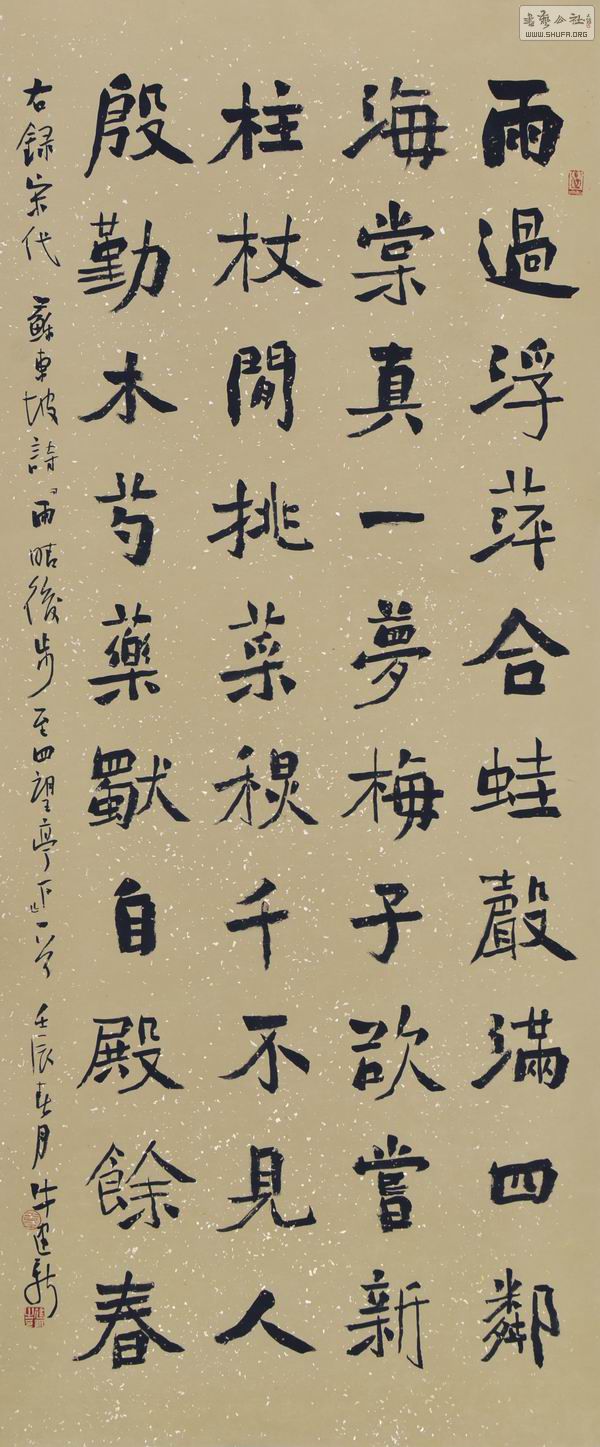 書藝公社
WWW.SHUFA.ORG
雨過浮萍合蛙聲滿四鄰
海棠真一夢梅子欲嘗新
柱杖閒挑菜秋千不見人
殷勤木芍藥獨自殿餘春
右録宋代 蘇東坡詩雨晴後步至四望亭下一首 壬辰春月 牛建新